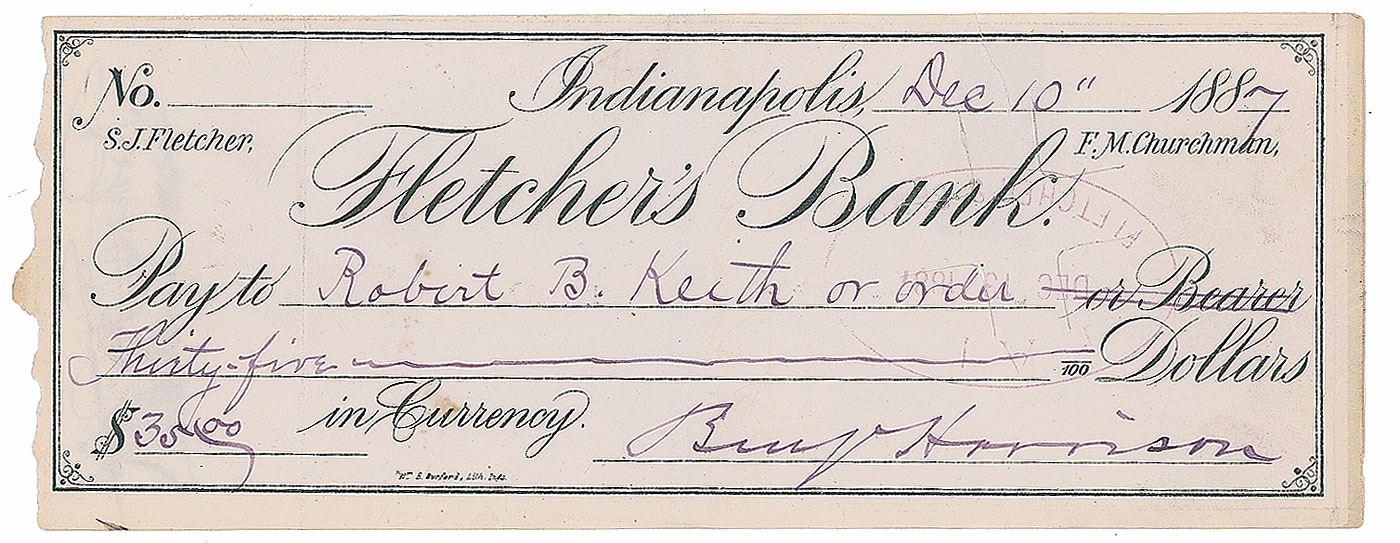 No. Indianapolis, Dec 10" 1887
S.J. Fletcher, F. M. Churchman,
Fletcher's Bank.
Pay to Robert B. Keith or order or Bearer
Thirty-five /100 Dollars
$35.00 in Currency.
Benj Harrison
Wm B. Burford, Lith. Inds.
FLETCHER
DEC 1887